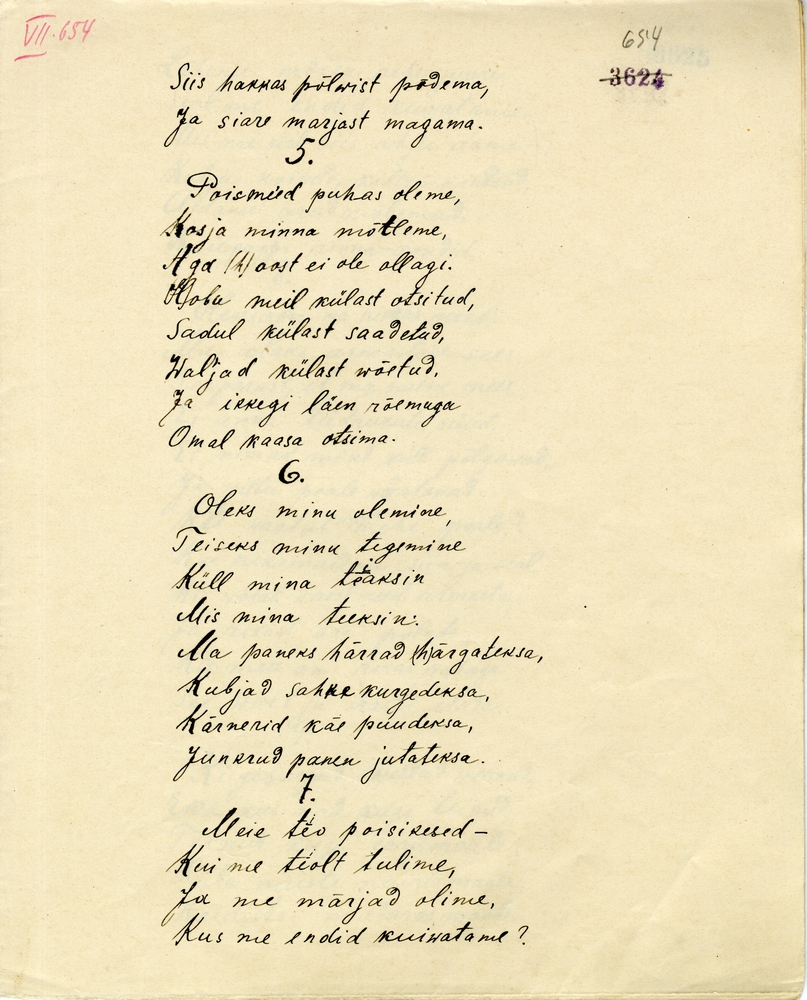 VII·654
654
3624
Siis hakkas põlwist põdema,
Ja siare marjast magama.
5.
Poismeed puhas oleme,
Kosja minna mõtleme,
Aga (h)oost ei ole ollagi.
(H)obu meil külast otsitud,
Sadul külast saadetud,
Waljad külast wõetud.
Ja ikkegi läen rõemuga
Omal kaasa otsima.
6.
Oleks minu olemine,
Teiseks minu tegemine
Küll mina tėaksin
Mis mina teeksin:
Ma paneks härrad (h)ärgateksa,
Kubjad sahke kurgedeksa,
Kärnerid käe puudeksa,
Junkrud panen jutateksa.
7.
Meie tėo poisikesed –
Kui me tėolt tulime,
Ja me märjad olime,
Kus me endid kuiwatame?